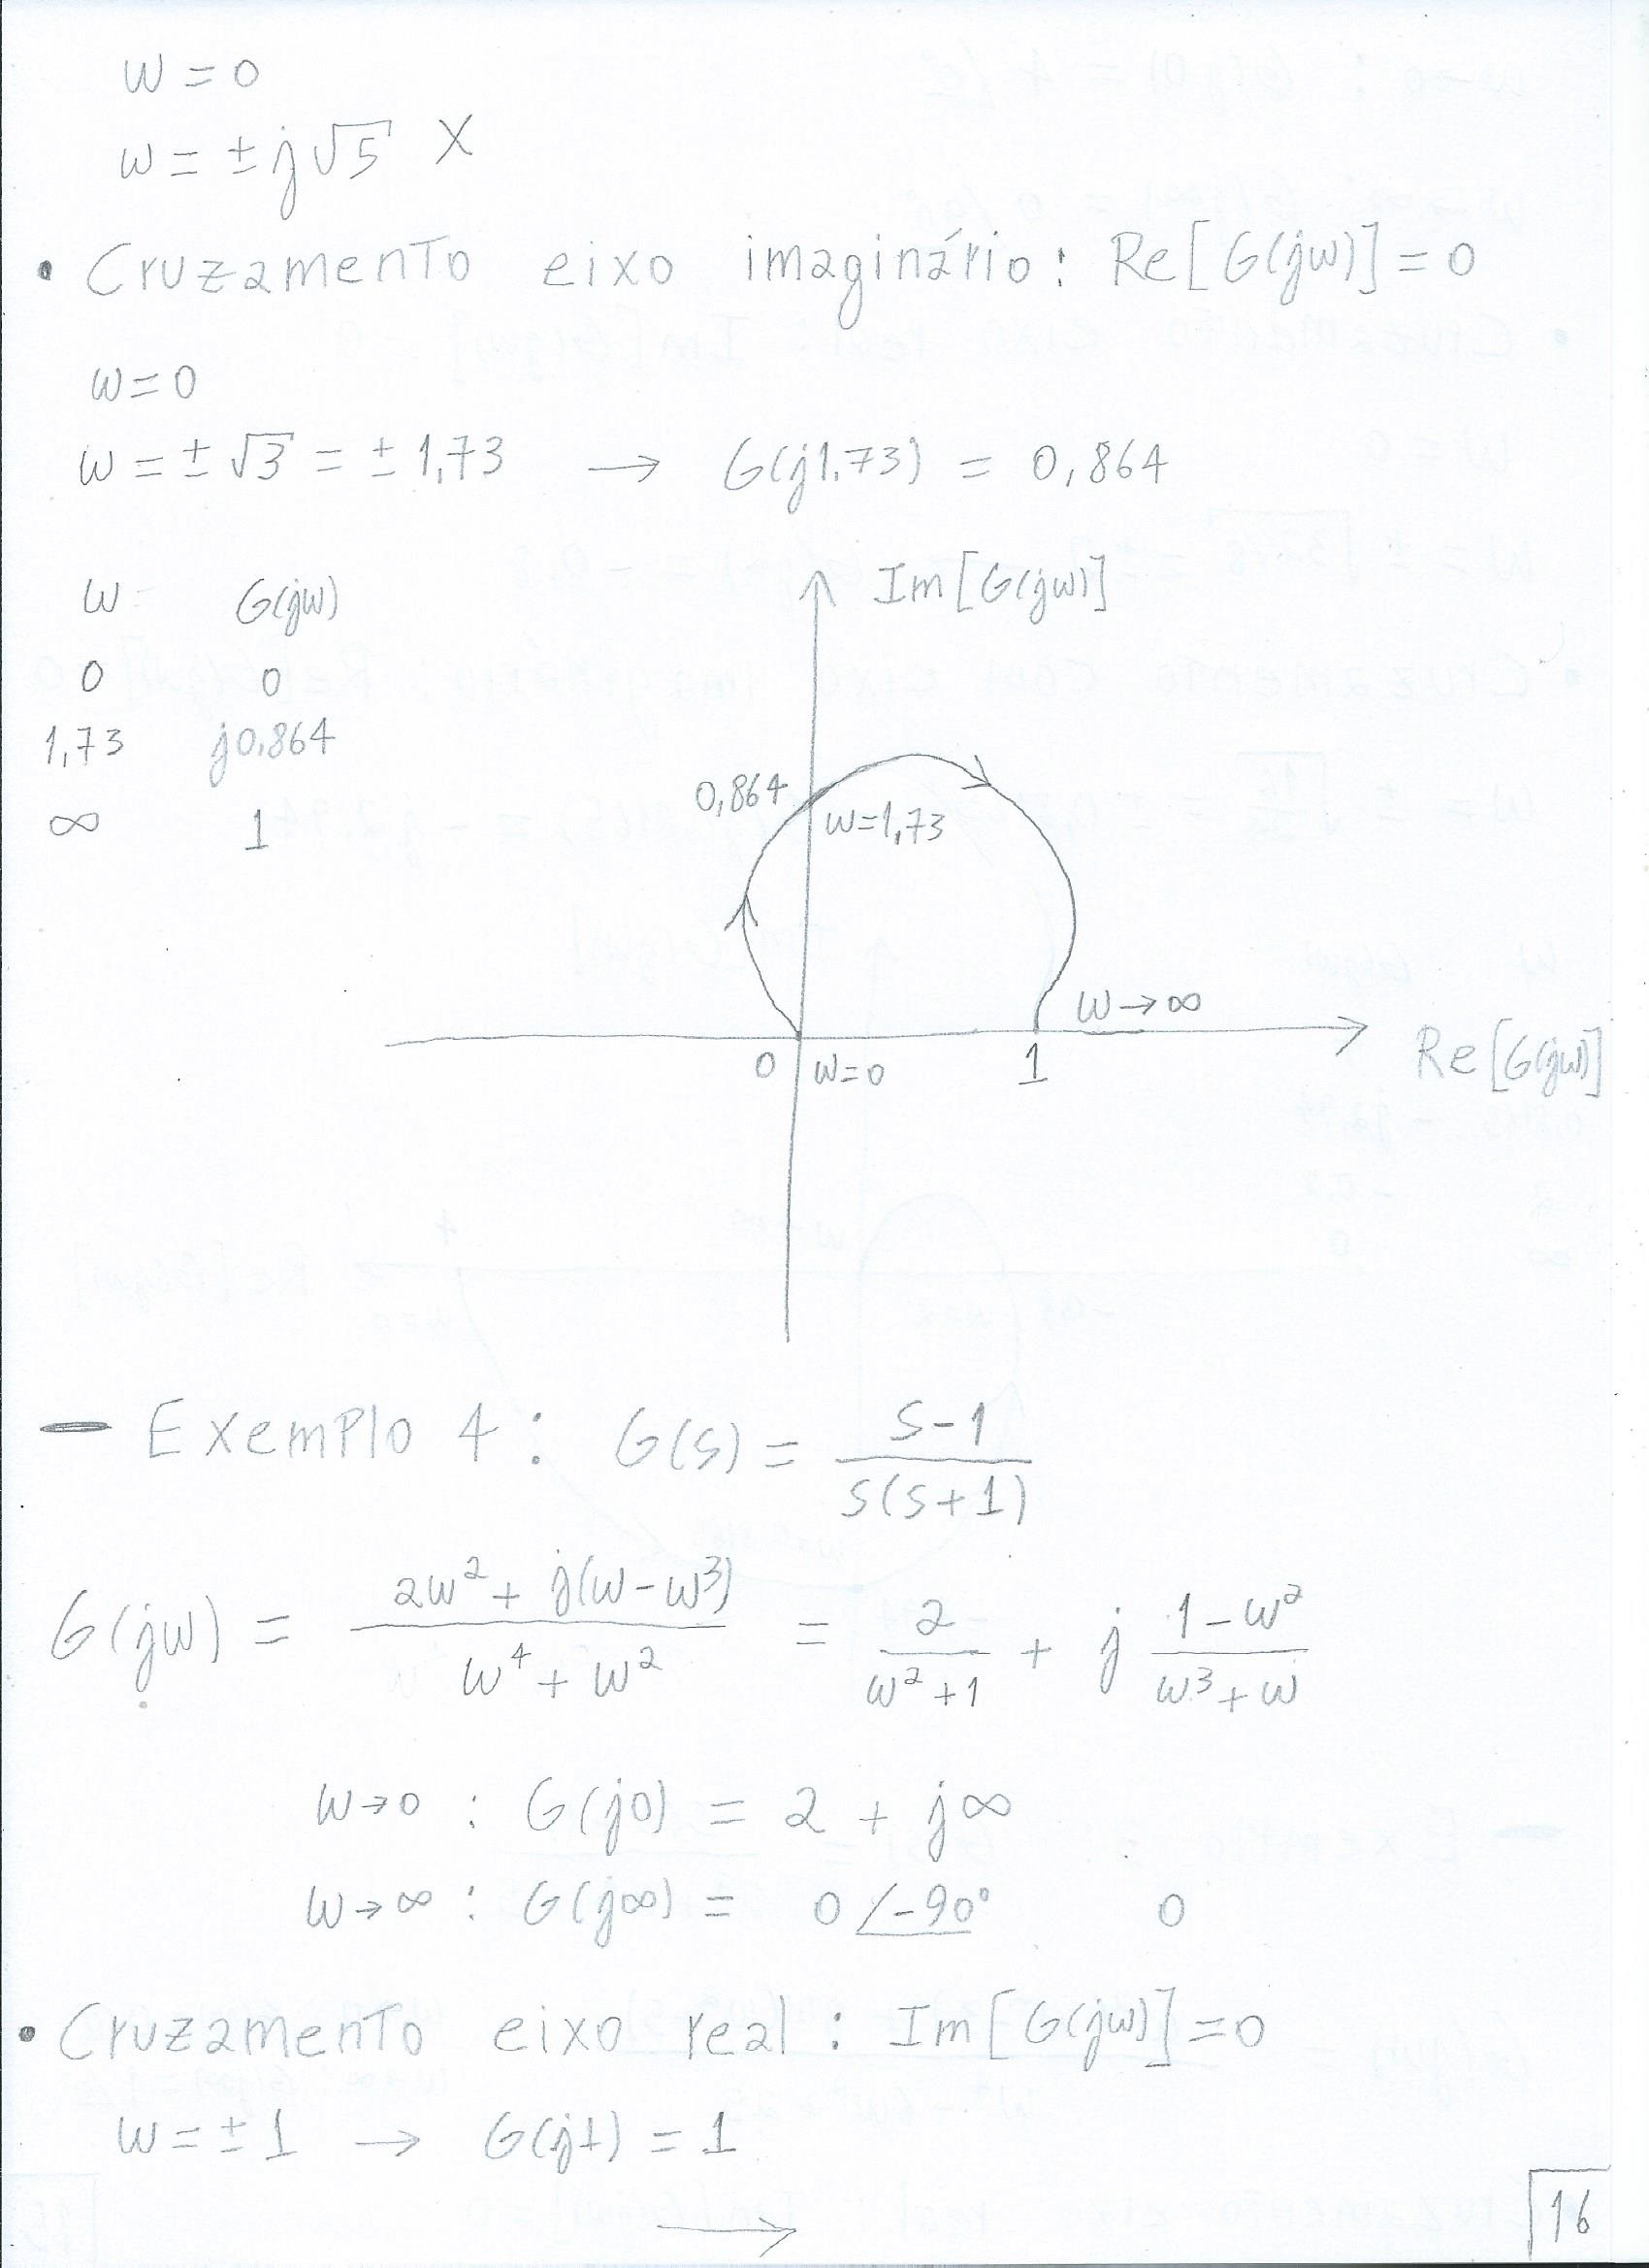 w = 0
w = ± j√5 X
• Cruzamento eixo imaginário: Re[G(jw)] = 0
w = 0
w = ± √3 = ± 1,73 → G(j1,73) = 0,864
w G(jw)
0 0
1,73 j0,864
∞ 1
Im[G(jw)]
0,864
w=1,73
w→∞
0 w=0 1
Re[G(jw)]
— Exemplo 4: G(s) = (s-1)/(s(s+1))
G(jw) = (2w² + j(w-w³))/(w⁴ + w²) = 2/(w²+1) + j (1-w²)/(w³+w)
w→0 : G(j0) = 2 + j∞
w→∞ : G(j∞) = 0 ∠-90° 0
• Cruzamento eixo real : Im[G(jw)] = 0
w = ± 1 → G(j1) = 1
→
16